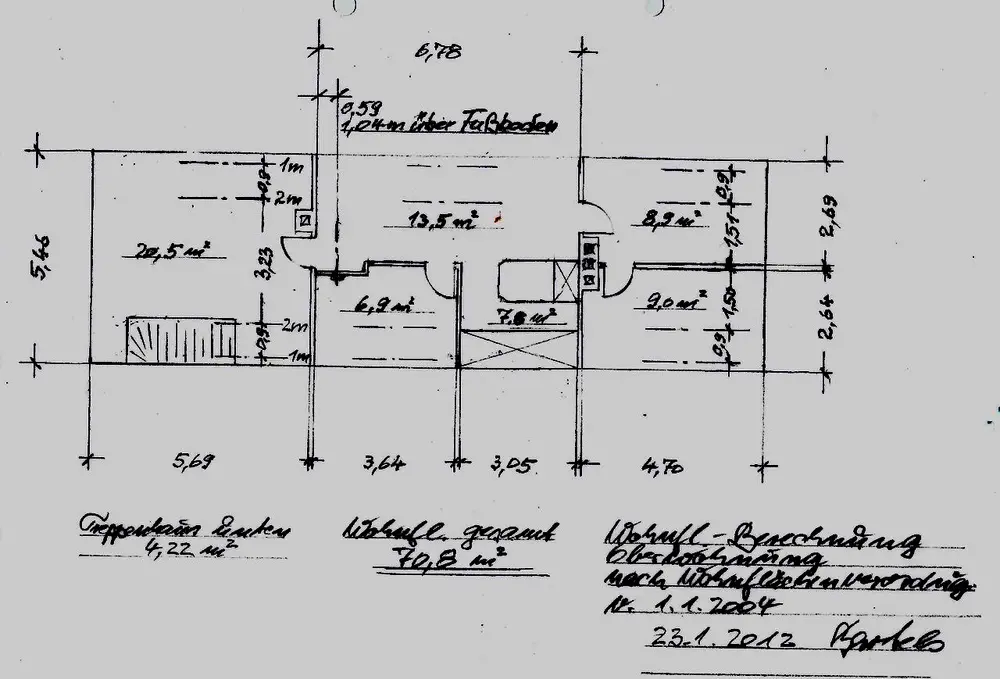 6,78
0,59
1,04 m über Fußboden
1m
0,9
2m
13,5 m²
8,9 m²
0,9
1,51
2,69
5,46
20,5 m²
3,23
6,9 m²
7,8 m²
9,0 m²
1,50
2,64
2m
0,9
1m
0,9
5,69
3,64
3,05
4,70
Treppenraum unten
4,22 m²
Wohnfl. gesamt
70,8 m²
Wohnfl.-Berechnung
Oberwohnung
nach Wohnflächenverordng.
v. 1.1.2004
23.1.2012